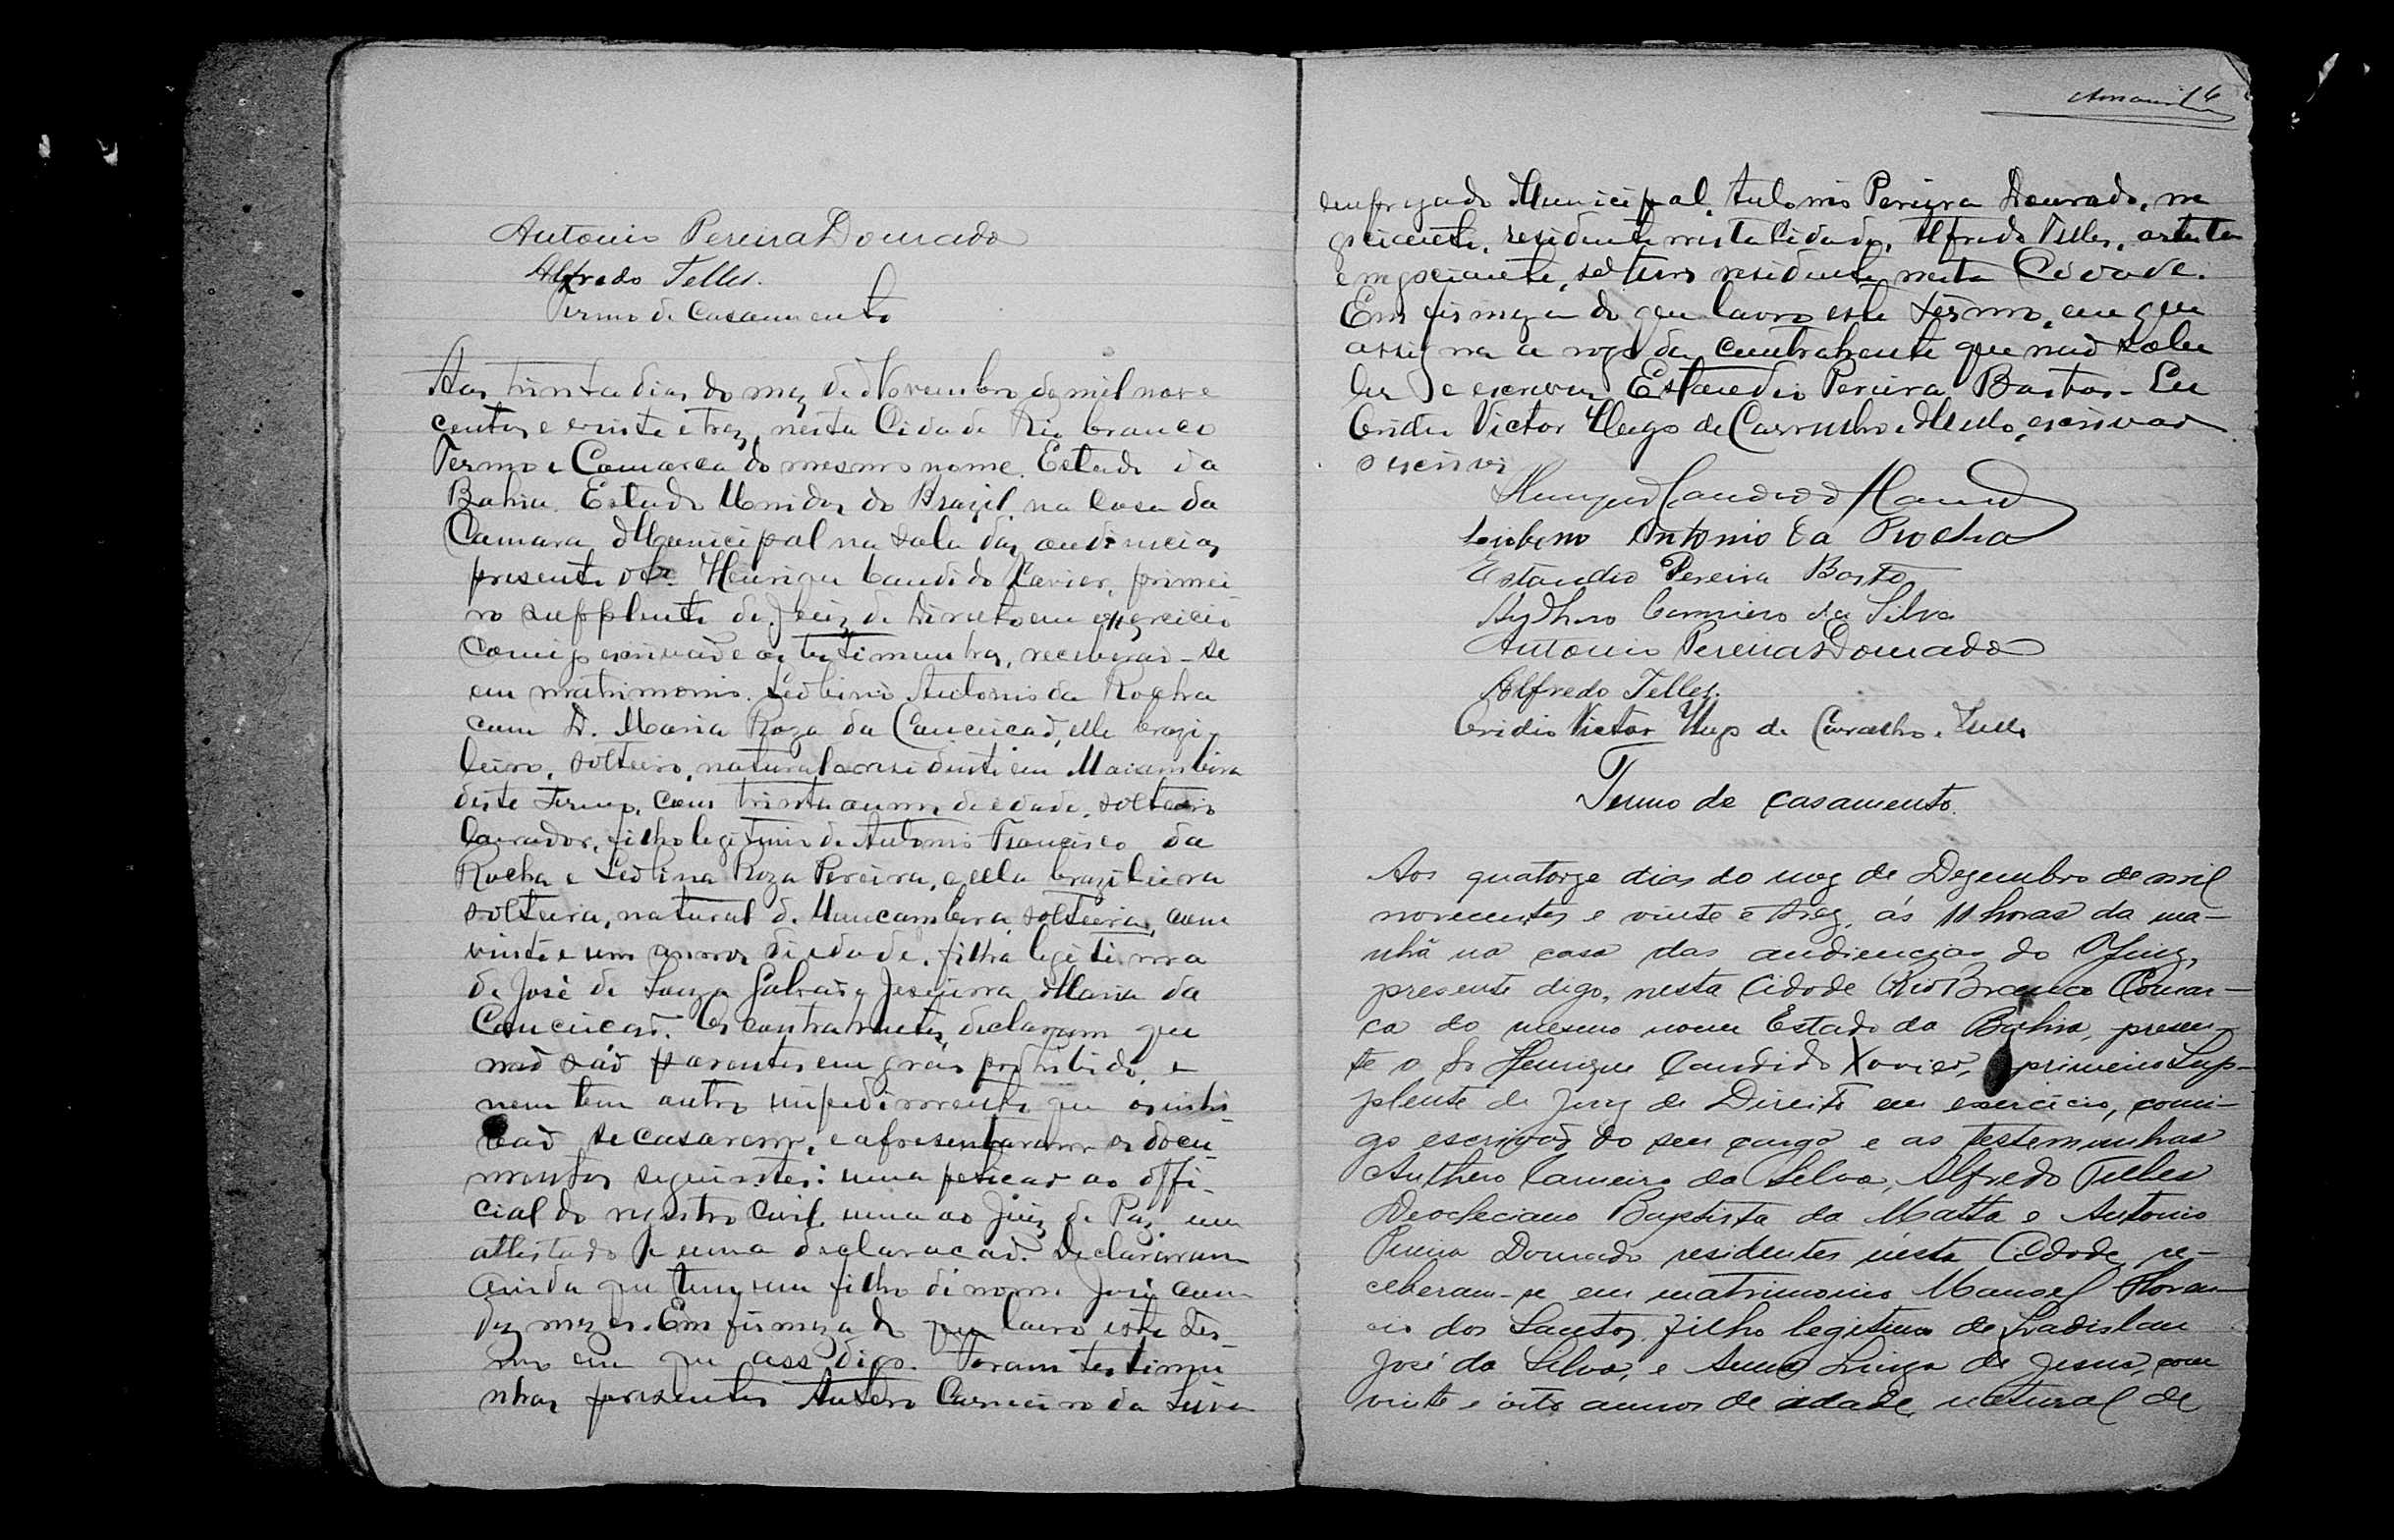 Antonio Pereira Dourado
Alfredo Telles.
Termo de Casamento
Aos trinta dias do mez de Novembro de mil nove
centos e vinte e trez, nesta Cidade Rio branco
Termo e Comarca do mesmo nome, Estado da
Bahia, Estado Unidos do Brazil, na Casa da
Camara Municipal na sala das audiencias
presente o Sr. Henrique Candido Xavier, primei
ro supplente de Juiz de Direito em exercicio
comigo escrivão e as testimunhas, receberão-se
em matrimonio Leobino Antonio da Rocha
com D. Maria Roza da Conceição, elle brazi
leiro, solteiro, natural e residente em
deste Termo, com trinta annos de edade, solteiro
lavrador, filho legitimo de Antonio Francisco da
Rocha e Leolina Roza Pereira, e ella brazileira
solteira, natural de solteira, com
vinte e um annos de edade, filha legitima
de José de Souza Galvão e Maria da
Conceição. Os contrahentes declaram que
não são parentes em gráo prohibido, e
nem tem outro impedimento que
se casarem, e apresentaram os docu
mentos seguintes: uma petição ao offi-
cial do registro Civil, uma ao Juiz de Paz, um
attestado e uma declaração. Declararam
ainda que tem um filho de nome José com
dez mezes. Em firmeza do que lavro este ter
mo em que ass digo. Foram testimu
nhas presentes Antero Carneiro da Silva
6
empregado Municipal, Antonio Pereira Dourado, ne
gociante, residente nesta Cidade, Alfredo Telles, artista
e negociante, solteiro residente nesta Cidade.
Em firmeza do que lavro este termo, em que
assigna a rogo da contrahente que não sabe
ler e escrever Pereira Bastos. Eu
Victor Hugo de Carvalho e Mello, escrivão
o escrevi
Henrique Candido Xavier
Leobino Antonio da Rocha
Pereira Basto
Carneiro da Silva
Antonio Pereira Dourado
Alfredo Telles.
Victor Hugo de Carvalho e Mello
Termo de casamento.
Aos quatorze dias do mez de Dezembro de mil
novecentos e vinte e trez, ás 11 horas da ma-
nhã na casa das audiencias do Juiz,
presente digo, nesta Cidade Rio Branco Comar-
ca do mesmo nome Estado da Bahia, presen-
te o Sr Henrique Candido Xavier, primeiro Sup-
plente de Juiz de Direito em exercicio, comi-
go escrivão do seu cargo e as testemunhas
Anthero Carneiro da Silva, Alfredo Telles
Deocleciano Baptista da Matta e Antonio
Pereira Dourado residentes nésta Cidade re-
ceberam-se em matrimonio Manoel
dos Santos, filho legitimo de Ladislau
José da Silva, e Anna Luiza de Jesus, com
vinte e oito annos de edade, natural de